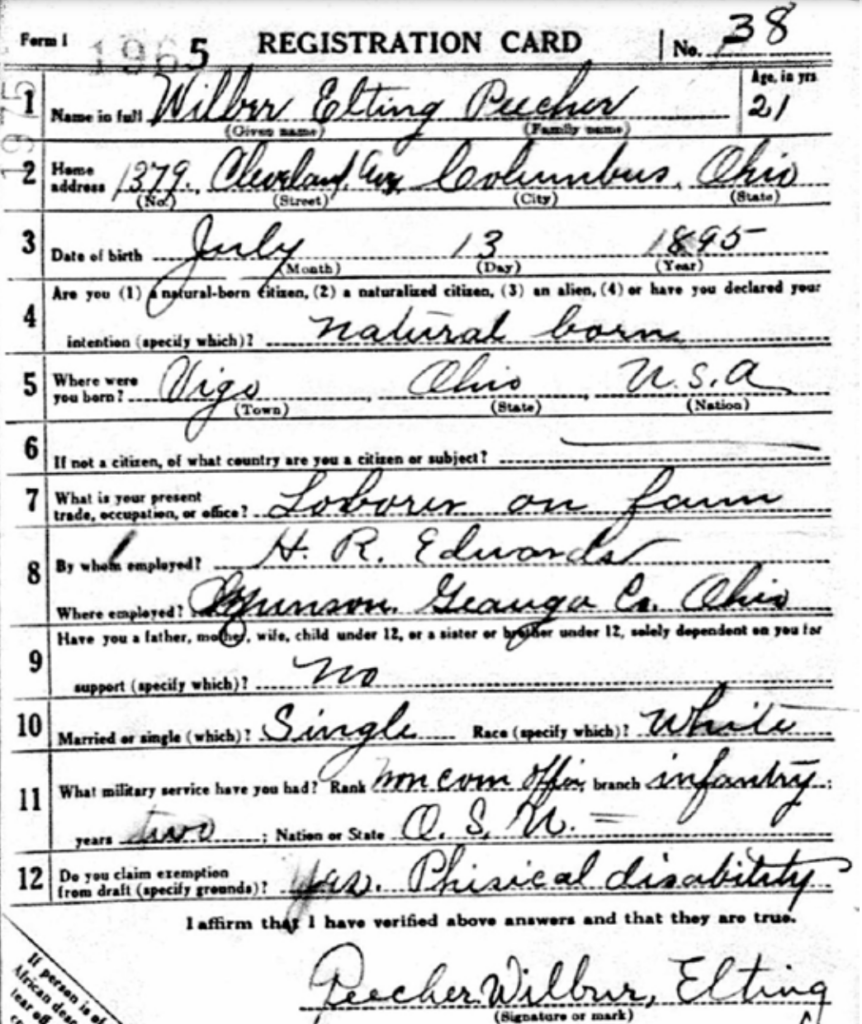 Form 1 1965 REGISTRATION CARD No. 38
1975
1 Name in full Wilber Elting Peecher Age, in yrs 21
(Given name) (Family name)
2 Home address 1379. Cleveland, Ave Columbus, Ohio
(No.) (Street) (City) (State)
3 Date of birth July 13 1895
(Month) (Day) (Year)
4 Are you (1) a natural-born citizen, (2) a naturalized citizen, (3) an alien, (4) or have you declared your
intention (specify which)? natural born
5 Where were you born? Vigo, Ohio, U.S.A
(Town) (State) (Nation)
6 If not a citizen, of what country are you a citizen or subject?
7 What is your present trade, occupation, or office? Laborer on farm
8 By whom employed? H. R. Edwards
Where employed? Munson. Geauga Co. Ohio
9 Have you a father, mother, wife, child under 12, or a sister or brother under 12, solely dependent on you for
support (specify which)? No
10 Married or single (which)? Single Race (specify which)? White
11 What military service have you had? Rank non com offi, branch infantry;
years two; Nation or State O. S. U.
12 Do you claim exemption from draft (specify grounds)? Yes. Phisical disability
I affirm that I have verified above answers and that they are true.
Peecher Wilbur, Elting
(Signature or mark)
If person is of
African
tear off